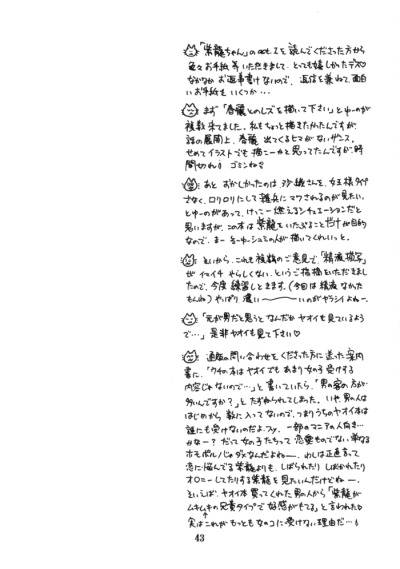 「紫龍ちゃん」の∞もIを読んでくださった方から
色々お手紙等いただきまして、とっても嬉しかったデス♡
なかなかお返事書けないので、返信を兼ねて面白
いお手紙をいくつか…
まず「春麗とのレズを描いて下さい」とゆーのが
複数来てました。私もちょっと描きたかったんですが、
話の展開上、春麗出てくるヒマがないザンス。
せめてイラストでも描こーかと思ってたんですが、時
間切れ。ゴミンねっ
あとおかしかったのは沙織さんを、女王様タイプ
でなく、ロリロリにして雑兵にマワされるのが見たい、
とゆーのがあって、けっこー燃えるシチュエーションだと
思いますが、この本は紫龍をいたぶることだけが目的
なので、まーそーゆーシュミの人が描いてくれいっと。
といいから、これも複数のご意見で、「精液描写」
がイマイチ やらしくない、というご指摘をいただきました
ので、今度 練習しときます。(今回は精液なかった
もんね)やっぱり濃い〜〜〜いのがヤラシイよねー。
「元が男だと思うとなんだかヤオイも見ているよう
で…」是非ヤオイも見て下さい♡
通販の問い合わせをくださった方に送った案内
書に、「ウチの本はヤオイでもあまり女の子受けする
内容じゃないので…」と書いていたら、「男の客の方が
多いんですか?」とたずねられてしまった。いや、男の人は
はじめから数に入ってないので、つまりうちのヤオイ本は
誰にも受けないのだよ、フッ。一部のマニアの人向き…
かなー?だって女の子たちって恋愛ものでない単なる
ホモポルノじゃダメなんだよねー。わしは正直言って
恋に悩んでる紫龍よりも、しばられたりしばかれたり
オ○ニーしてたりする紫龍を見たいんだけどねー。
といえば、ヤオイ本買ってくれた男の人から「紫龍が
ムキムキの兄貴タイプで好感がもてる」と言われた♡
実はこれがもっとも女のコに受けない理由だ…
43